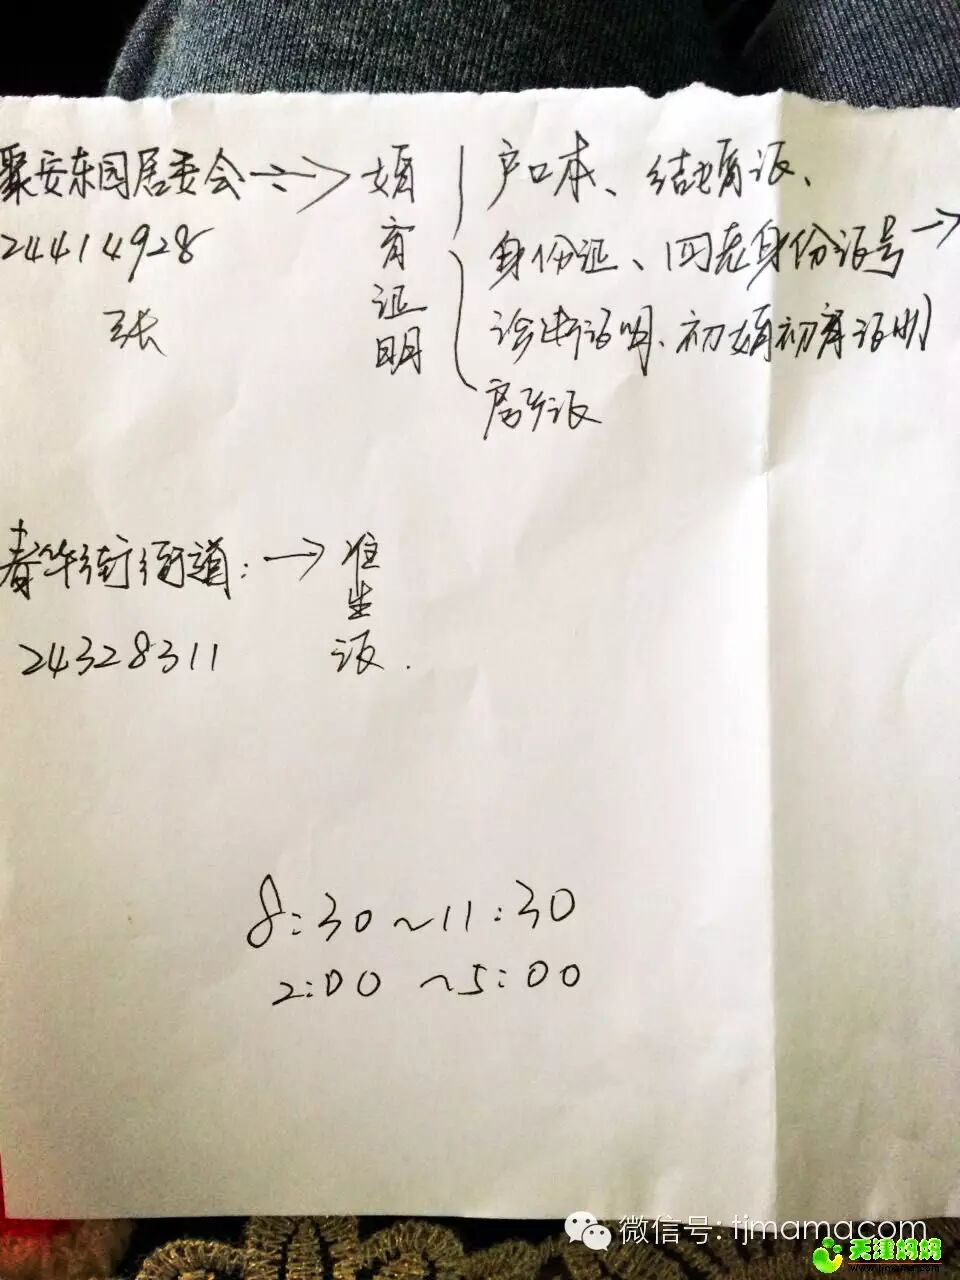 聚安东园居委会→
24414928
张
婚育证明
户口本、结婚证、
身份证、四老身份证号→
诊断证明、初婚初育证明
房产证
春华街街道:→准生证.
24328311
8:30~11:30
2:00~5:00
微信号: tjmamacom
天津妈妈
www.tjmama.com